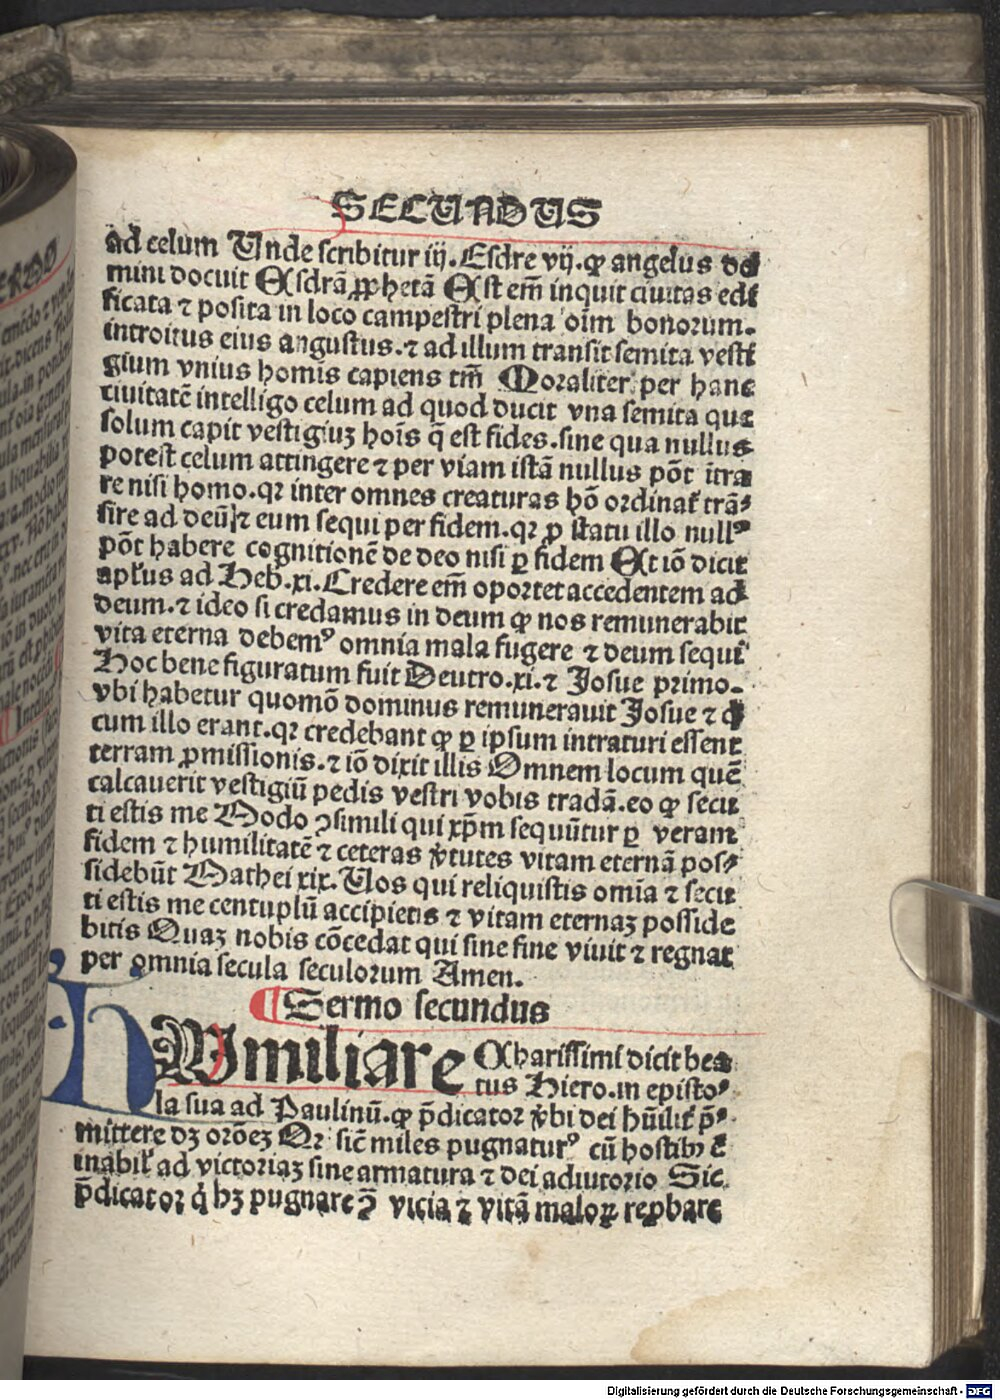 SECUNDUS
ad celum Unde scribitur iij. Esdre vij. ꝙ angelus do
mini docuit Esdrā ꝓphetā Est em̄ inquit ciuitas edi
ficata ⁊ posita in loco campestri plena oīm bonorum.
introitus eius angustus. ⁊ ad illum transit semita vesti
gium vnius homis capiens tm̄ Moraliter per hanc
ciuitatē intelligo celum ad quod ducit vna semita que
solum capit vestigiuꝫ hoīs q̄ est fides. sine qua nullus
potest celum attingere ⁊ per viam istā nullus pōt ītra
re nisi homo. qꝛ inter omnes creaturas hō ordinat᷑ trā⸗
sire ad deū ⁊ eum sequi per fidem. qꝛ ꝓ statu illo nullꝰ
pōt habere cognitionē de deo nisi ꝑ fidem Et iō dicit
apl̄us ad Heb. xi. Credere em̄ oportet accedentem ad
deum. ⁊ ideo si credamus in deum ꝙ nos remunerabit
vita eterna debemꝰ omnia mala fugere ⁊ deum sequi
Hoc bene figuratum fuit Deutro. xi. ⁊ Josue primo.
vbi habetur quomō dominus remunerauit Josue ⁊ q̇
cum illo erant. qꝛ credebant ꝙ ꝑ ipsum intraturi essent
terram ꝓmissionis. ⁊ iō dixit illis Omnem locum quē
calcauerit vestigiū pedis vestri vobis tradā. eo ꝙ secu
ti estis me Modo ꝯsimili qui xp̄m sequūtur ꝑ veram
fidem ⁊ humilitatē ⁊ ceteras v̓tutes vitam eternā pos⸗
sidebūt Mathei xix. Uos qui reliquistis omīa ⁊ secu
ti estis me centuplū accipietis ⁊ vitam eternaꝫ posside
bitis Quaꝫ nobis cōcedat qui sine fine viuit ⁊ regnat
per omnia secula seculorum Amen.
¶ Sermo secundus
HUmiliare Charissimi dicit bea
tus Hiero. in episto⸗
la sua ad Paulinū. ꝙ p̄dicator v̓bi dei hūilit᷑ p̄⸗
mittere dꝫ orōeꝫ Qꝛ sic̄ miles pugnaturꝰ cū hostibꝰ ē
inabil᷑ ad victoriaꝫ sine armatura ⁊ dei adiutorio Sic
p̄dicator q̇ hꝫ pugnare ꝯ̄ vicia ⁊ vitā maloꝝ reꝓbare